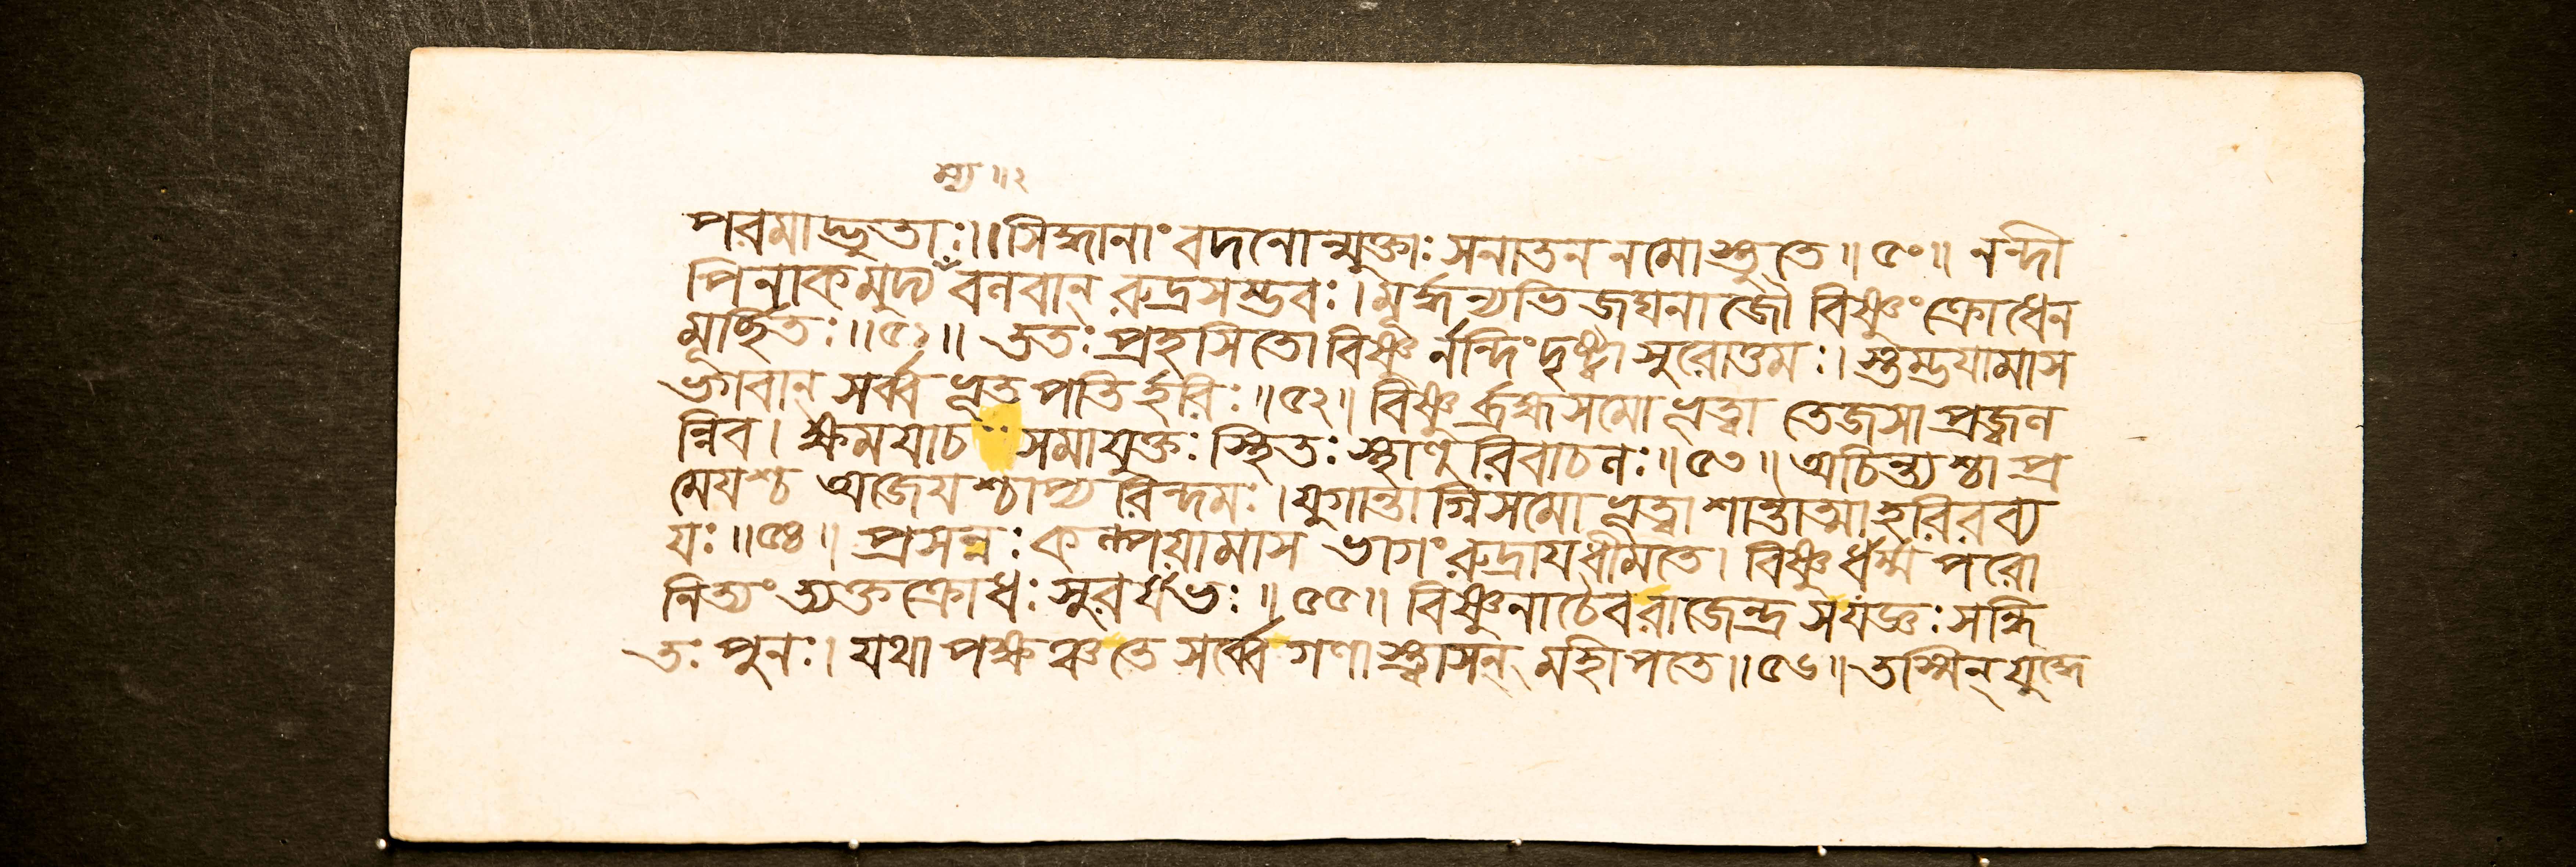 ম্য ॥ ২
পরমাদ্ভুতাঃ ।। সিদ্ধানাং বদনোন্মুক্তাঃ সনাতন নমোস্তুতে ॥ ৫০ ॥ নন্দী
পিনাকমুদ্য বনবান্ রুদ্রসম্ভবঃ । মূর্দ্ধন্যভিজঘনাজৌ বিষ্ণুং ক্রোধেন
মূর্চ্ছিতঃ ॥ ৫১ ॥ ততঃ প্রহসিতো বিষ্ণু র্নন্দিং দৃষ্ট্বা সুরোত্তমঃ । স্তুম্ভয়ামাস
ভগবান্ সর্ব্বভূতপতির্হরিঃ ॥ ৫২ ॥ বিষ্ণুর্ব্রহ্মসমো ভূত্বা তেজসা প্রজ্বন
ন্নিব । ক্ষময়াচ সমাযুক্তঃ স্থিতঃ স্থাণু রিবাচনঃ ॥ ৫৩ ॥ অচিন্ত্যশ্চা প্র
মেযশ্চ অজেযশ্চাপ্য রিন্দমঃ । যুগান্তাগ্নিসমো ভূত্বা শান্তাত্মা হরিরব্য
যঃ ॥ ৫৪ ॥ প্রসন্নঃ কল্পয়ামাস ভাগং রুদ্রায ধীমতে । বিষ্ণু র্ধর্ম্ম পরো
নিত্যং ত্যক্ত ক্রোধঃ সুরর্ষভঃ ॥ ৫৫ ॥ বিষ্ণুনাচৈব রাজেন্দ্র স যজ্ঞঃ সন্ধি
তঃ পুনঃ । যথা পক্ষঞ্চ তে সর্ব্বে গণা স্ত্বাসন্ মহীপতে ॥ ৫৬ ॥ তস্মিন্ যুদ্ধে